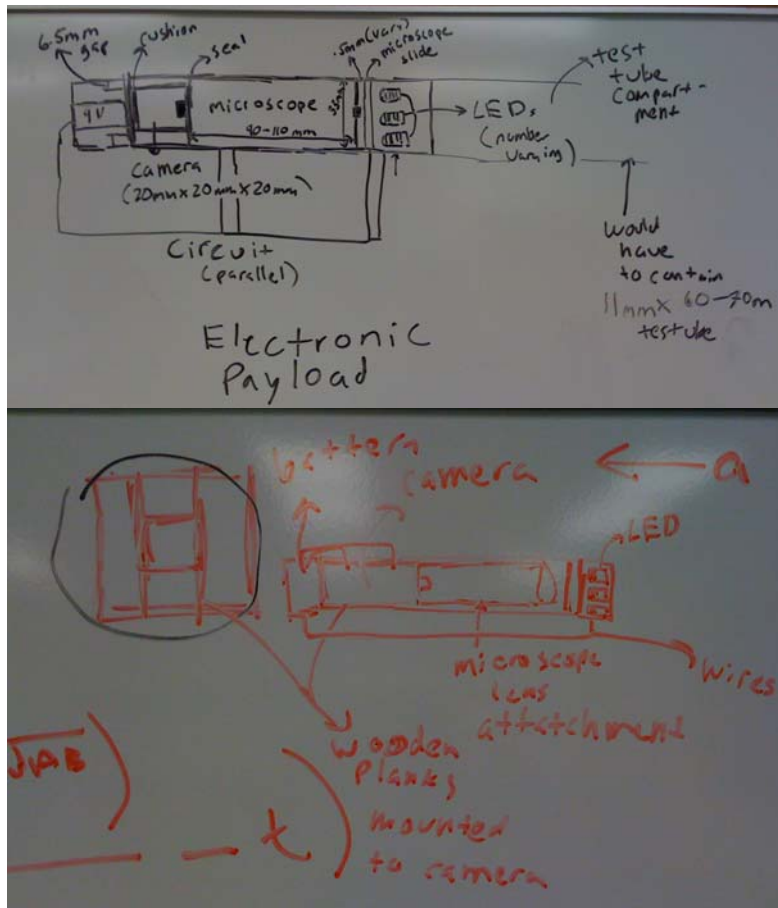 6.5mm
gap
cushion
seal
.5mm(vary)
microscope
slide
test
tube
compart-
ment
9V
microscope
35mm
90-110 mm
LEDs
(number
varying)
camera
(20mm x 20mm x 20mm)
Circuit
(parallel)
would
have
to contain
11mm x 60-70m
testtube
Electronic
Payload
battery
camera
a
LED
microscope
lens
attatchment
wires
wooden
planks
mounted
to camera
t